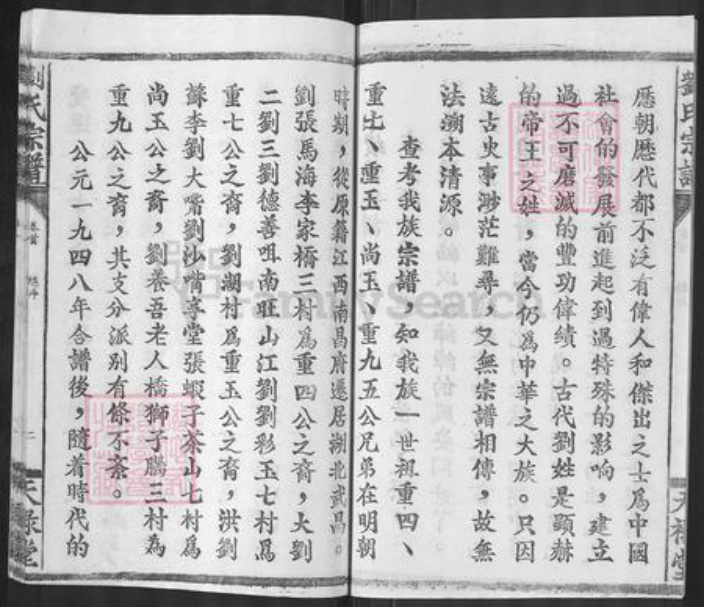 劉氏宗譜
歷朝歷代都不泛有偉人和傑出之士爲中國
社會的發展前進起到過特殊的影响，建立
過不可磨滅的豐功偉績。古代劉姓是顯赫
的帝王之姓，當今仍爲中華之大族。只因
遠古史事渺茫難尋，又無宗譜相傳，故無
法溯本清源。
查考我族宗譜，知我族一世祖重四、
重七、重玉、尚玉、重九五公兄弟在明朝
時期，從原籍江西南昌府遷居湖北武昌。
劉張馬海李家橋三村爲重四公之裔，大劉
二劉三劉德善咀南旺山江劉劉彩玉七村爲
重七公之裔，劉湖村爲重玉公之裔，洪劉
蘇李劉大嘴劉沙嘴享堂張蝦子茶山七村爲
尚玉公之裔，劉養吾老人橋獅子腦三村為
重九公之裔，其支分派别有條不紊。
公元一九四八年合譜後，隨着時代的
天祿堂
劉氏宗譜
卷首
二
天祿堂
FamilySearch